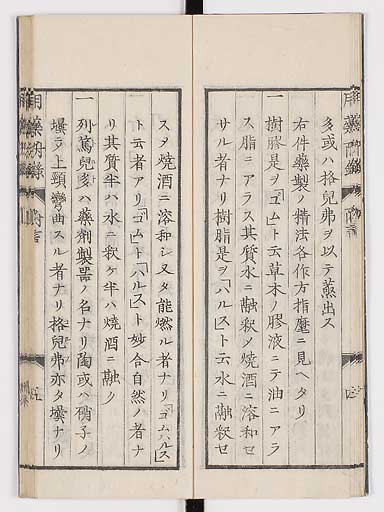 多或ハ格兒弗ヲ以テ蒸出ス
右件藥製ノ精法各作方指麾ニ見ヘタリ
一樹膠是ヲ「ゴムト云草木ノ膠液ニテ油ニアラ
ス脂ニアラス其質水ニ融釈メ焼酒ニ溶和セ
サル者ナリ樹脂是ヲ「ハルストス云水ニ融釈セ
スメ焼酒ニ溶和シ又タ能燃ル者ナリ「ゴムハルス
ト云者アリ「ゴムト「ハルスト妙合自然ノ者ナ
リ其質半ハ水ニ釈ケ半ハ焼酒ニ融ク
一列篤兒多ハ藥劑製器ノ名ナリ陶或ハ硝子ノ
壜ラ上頸彎曲スル者ナリ格兒弗亦タ壜ナリ